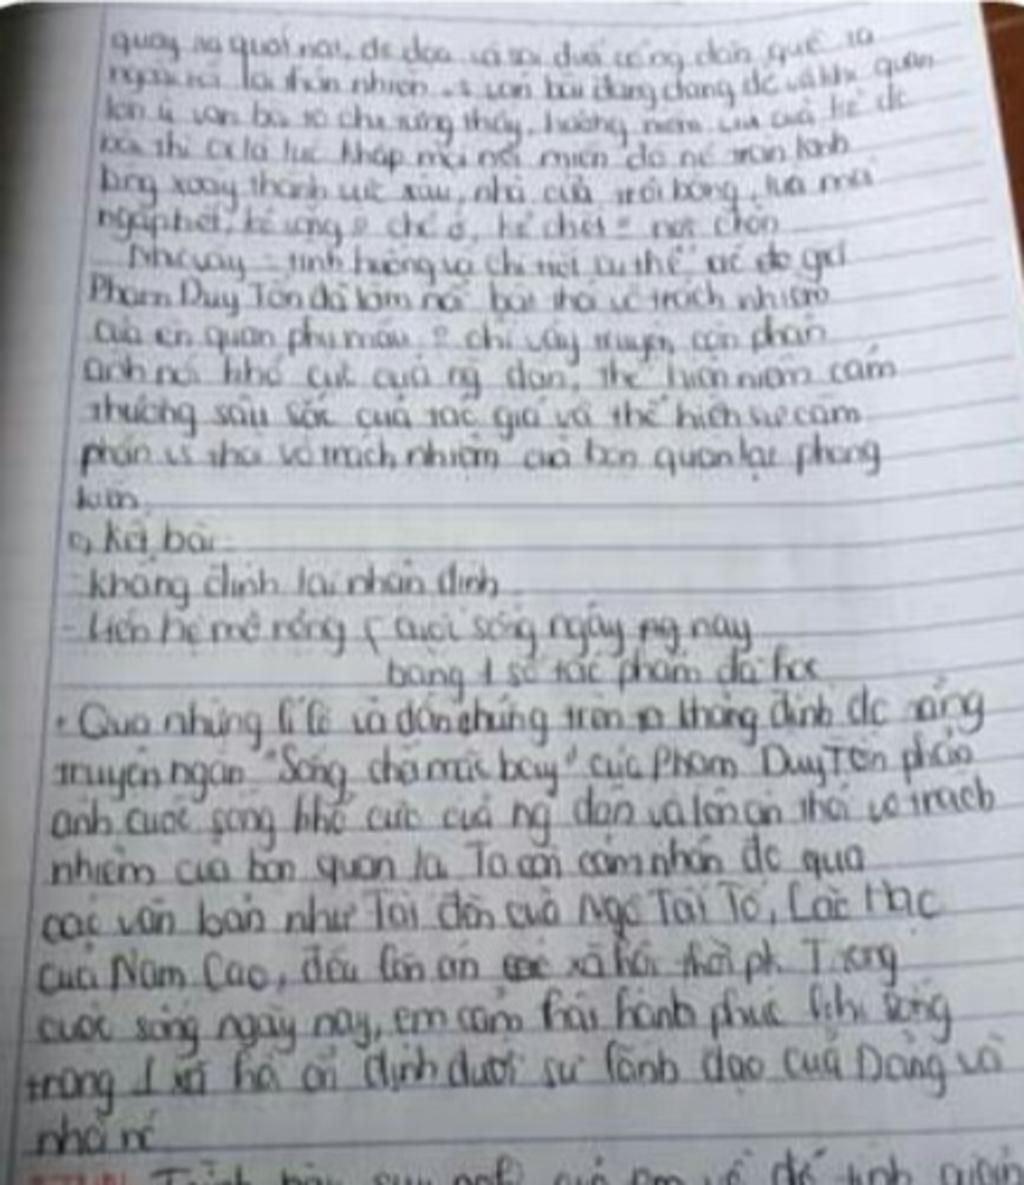 quay ra quát nạt, đe dọa và sai đuổi cổng dân quê ra
ngoài rồi lại thản nhiên vs ván bài đang dang dở và khi quan
lớn ù ván bài to chưa từng thấy, hường niềm vui của kẻ
bài thì cx là lúc khắp mọi nơi miền đó nc tràn lênh
láng xoáy thành vực sâu, nhà cửa trôi băng, lúa má
ngập hết, kẻ sống o chỗ ở, kẻ chết o nơi chôn
Như vậy tình huống và chi tiết cụ thể tác giả
Phạm Duy Tốn đã làm nổi bật thói vô trách nhiệm
của tên quan phụ mẫu o chỉ vậy truyện còn phản
ánh nỗi khổ cực của ng dân, thể hiện niềm cảm
thương sâu sắc của tác giả và thể hiện sự căm
phẫn vs thói vô trách nhiệm của bọn quan lại phong
kiến.
c, Kết bài:
- Khẳng định lại nhận định
- Liên hệ mở rộng { cuộc sống ngày nay
bằng 1 số tác phẩm đã học
• Qua những lí lẽ và dẫn chứng trên khẳng định đc rằng
truyện ngắn "Sống chết mặc bay" của Phạm Duy Tốn phản
ánh cuộc sống khổ cực của ng dân và lên án thói vô trách
nhiệm của bọn quan lại. Ta còn cảm nhận đc qua
các văn bản như Tắt đèn của Ngô Tất Tố, Lão Hạc
của Nam Cao, đều lên án xã hội thời pk. Trong
cuộc sống ngày nay, em cảm thấy hạnh phúc khi sống
trong 1 xã hội ổn định dưới sự lãnh đạo của Đảng và
nhà nc
Trình bày suy nghĩ của em về để tinh giản